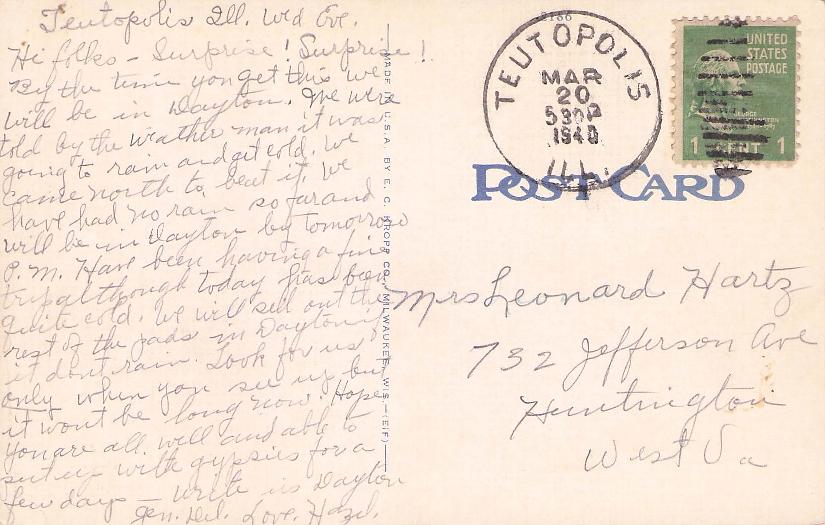 Teutopolis Ill. Wed Eve.
Hi folks - Surprise! Surprise!
By the time you get this we
will be in Dayton. We were
told by the weather man it was
going to rain and get cold. We
came north to beat it. We
have had no rain so far and
will be in Dayton by tomorrow
P. M. Have been having a fine
trip although today has been
quite cold. We will sell out the
rest of the pads in Dayton if
it don't rain. Look for us
only when you see us but
it won't be long now. Hope
you are all well and able to
put up with gypsies for a
few days - Write us Dayton
Gen. Del. Love. Hazel.
MADE IN U.S.A. BY E. C. KROPP CO., MILWAUKEE, WIS.—(E/F)
TEUTOPOLIS
MAR
20
530P
1940
ILL.
UNITED
STATES
POSTAGE
1 CENT 1
POST CARD
Mrs Leonard Hartz
732 Jefferson Ave
Huntington
West Va